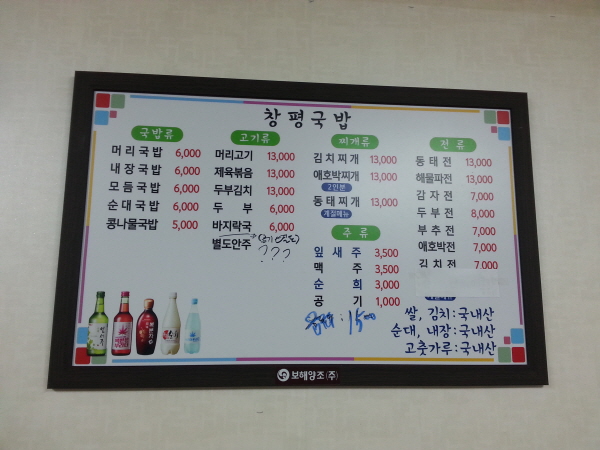 창평국밥
국밥류
머리국밥 6,000
내장국밥 6,000
모듬국밥 6,000
순대국밥 6,000
콩나물국밥 5,000
고기류
머리고기 13,000
제육볶음 13,000
두부김치 13,000
두부 6,000
바지락국 6,000
별도안주 ???
찌개류
김치찌개 13,000
애호박찌개 13,000
2인분
동태찌개 13,000
계절메뉴
주류
잎새주 3,500
맥주 3,500
순희 3,000
공기 1,000
:1500
전류
동태전 13,000
해물파전 13,000
감자전 7,000
두부전 8,000
부추전 7,000
애호박전 7,000
김치전 7,000
쌀, 김치:국내산
순대, 내장:국내산
고춧가루:국내산
보해양조(주)